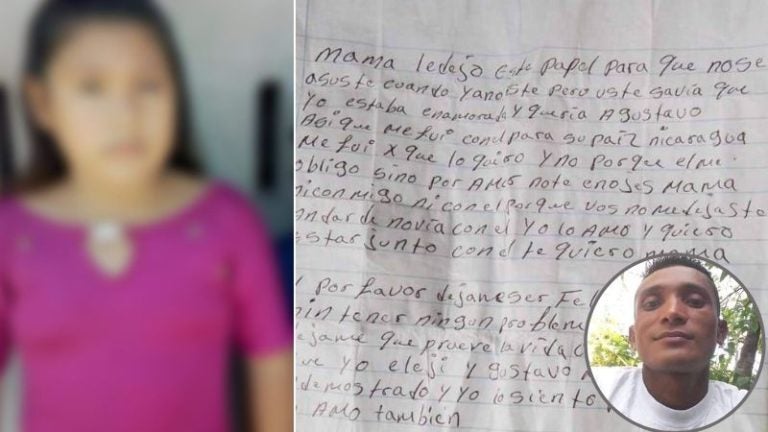 mama ledejo Este papel para que nose
asuste cuando yanoste pero uste savia que
yo estaba enamorada y queria A gustavo
Asi que me fui conel para su paiz nicaragua
me fui x que lo quiero y no porque el me
obligo sino por AMOR note enojes mama
niconmigo ni con el porque vos no me dejaste
andar de novia con el yo lo AMO y quiero
estar junto con el te quiero mama
por favor dejameser Fe
sin tener ningun problem
dejame que prueve la vida
que yo eleji y gustavo
demostrado y yo lo siento
AMO tambien